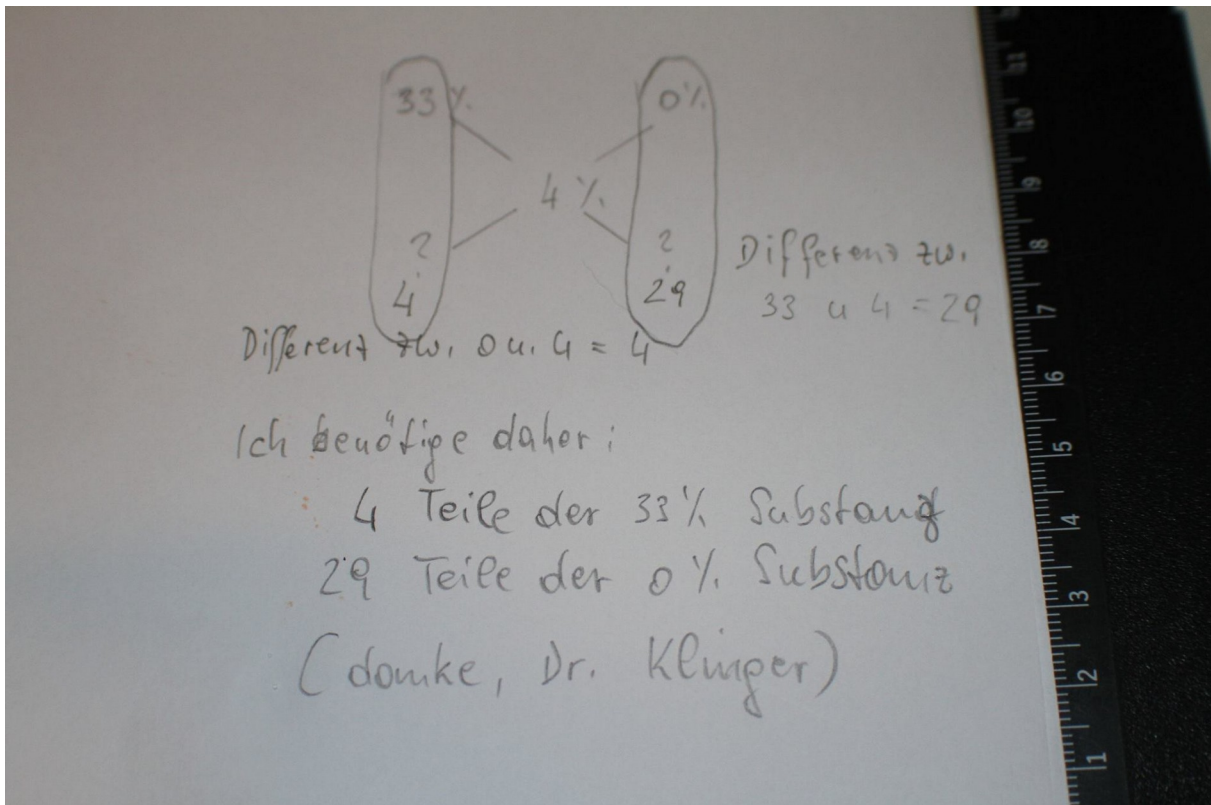 33% 0%
4%
? ?
4 29
Differenz zw.
33 u 4 = 29
Differenz zw. 0 u. 4 = 4
Ich benötige daher:
4 Teile der 33% Substanz
29 Teile der 0% Substanz
(danke, Dr. Klinger)
11
10
9
8
7
6
5
4
3
2
1